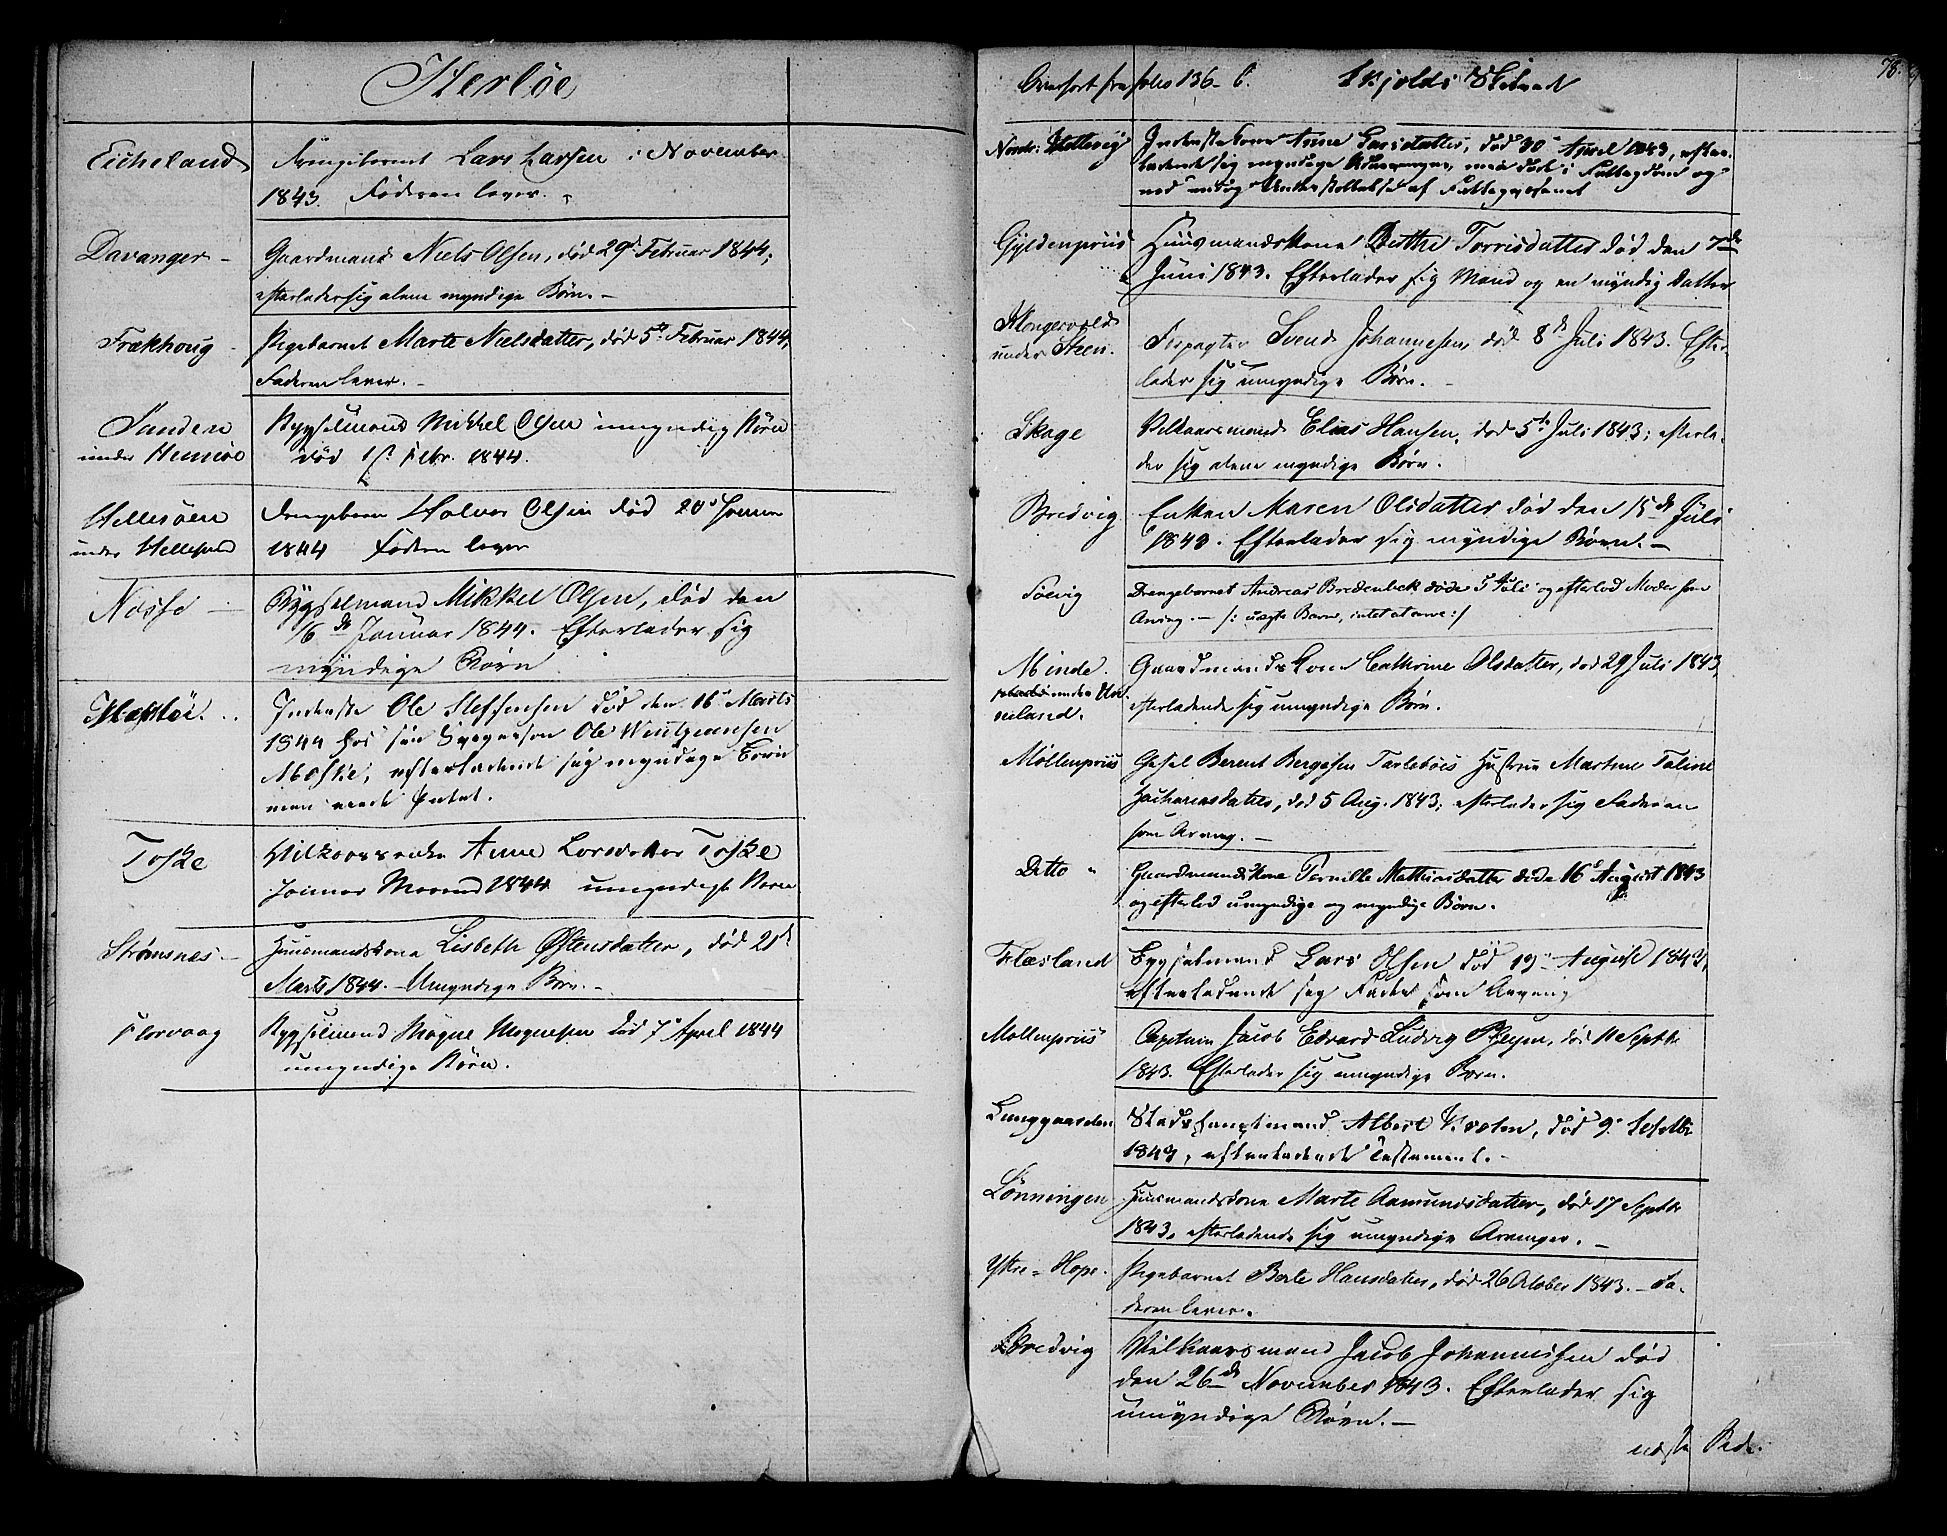 Herløe
Eicheland
Drengebarnet Lars Larsen i November
1843. Faderen lever.
Davanger –
Gaardmand Niels Olsen, død 29de Februar 1844,
efterlader sig alene myndige Børn. –
Frækhoug –
Pigebarnet Marte Nielsdatter, død 5te Februar 1844,
Faderen lever. –
Sanden
under Hennøe
Bygselmand Mikkel Olsen umyndig Børn
død Febr. 1844.
Hellesøen
under Hellesund
Drengebarn Halvor Olsen død 20de Januar
1844 Faderen lever
Næsse –
Bygselmand Mikkel Olsen, død den
16de Januar 1844. Efterlader sig
myndige Børn
Inderste Ole Steffensen død den 16de Marts
1844 hos sin Svegersøn Ole
efterladende sig myndige Børn
men intet.
Toske
Vilkaarsenke Anne Larsdatter Toske
1844 umyndige Børn
Strømsnæs –
Huusmandskone Lisbeth Østensdatter, død 21de
Marts 1844. – Umyndige Børn. –
Florvaag
Bygselmand Mogne Mognesen død 7de April 1844
umyndige Børn.
78.
Overført fra folio 136 b. Skjolds Skibrede
Nordre Hellevig
Inderstekone Anne Larsdatter, død 30 April 1843, efter-
ladende sig myndige Udarvinger, men døde i Fattigdom og
nød Understøttelse af Fattigvæsenet
Gyldenpriis
Huusmandskone Berthe Torrisdatter død den 7de
Juni 1843. Efterlader sig Mand og en myndig Datter
under Steen.
Forpagter Svend Johannesen, død 8de Juli 1843. Efter-
lader sig umyndige Børn. –
Skage
Vilkaarsmand Elias Hansen, død 5te Juli 1843; efterla-
der sig alene myndige Børn.
Bredvig
Enken Maren Olsdatter død den 15de Juli
1843. Efterlader sig myndige Børn. –
Søevig
Drengebarnet Andreas Bredenbek døde 5 Juli og efterlod Moder som
Arving. – /: uægte Barn, intet at arve :/
Minde
under
neland.
Gaardmandskone Cathrine Olsdatter, død 29 Juli 1843,
efterladende sig umyndige Børn.
Møllenpriis
Gesel Berent Bergesen Tarlebøes Hustrue Martine Taline
Zachariasdatter, død 5 Aug. 1843; efterlader sig Faderen
som Arving. –
Ditto "
Gaardmandskone Pernille Mathiasdatter døde 16de August 1843
og efterlod umyndige og myndige Børn.
Flæsland
Bygselmand Lars Olsen død 19de August 1843,
efterladende sig Fader som Arving
Møllenpriis
Capitain Jacob Edvard Ludvig død 11 Septbr
1843. Efterlader sig umyndige Børn.
Lunggaarden
Stadshauptmand Albert Krohn, død 9de Septbr
1843, efterladende Testament. –
Lønningen
Huusmandskone Marte Aamundsdatter, død 17 Septbr
1843, efterladende sig umyndige Arvinger. –
Ytre-Hope.
Pigebarnet Berte Hansdatter, død 26 October 1843. – Fa-
deren lever.
Bredvig
Vilkaarsmand Jacob Johannessen død
den 26de November 1843. Efterlader sig
umyndige Børn. –